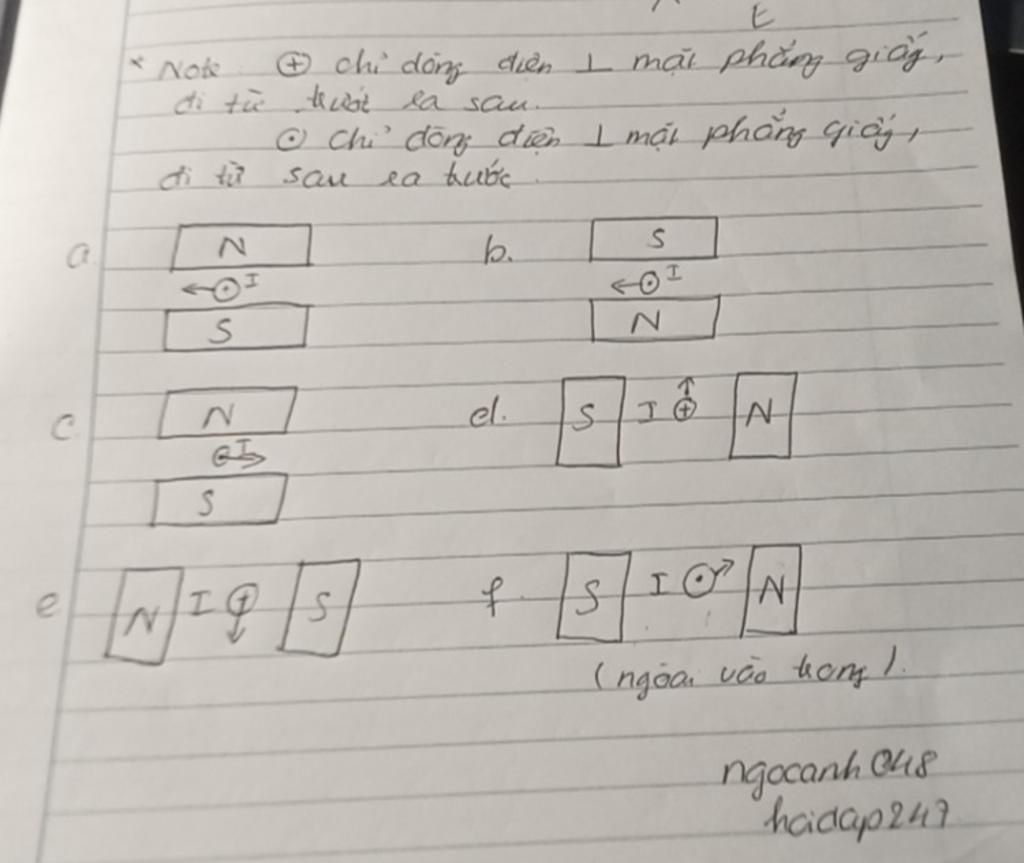 t
* Note ⊕ chỉ dòng điện ⊥ mặt phẳng giấy,
đi từ trước ra sau.
⊙ chỉ dòng điện ⊥ mặt phẳng giấy,
đi từ sau ra trước.
a. N b. S
←⊙ I ←⊙ I
S N
c. N d. S I ⊕ N
I
S
e N I ⊕ S f. S I ⊙ N
(ngoài vào trong).
ngocanh048
hoidap247